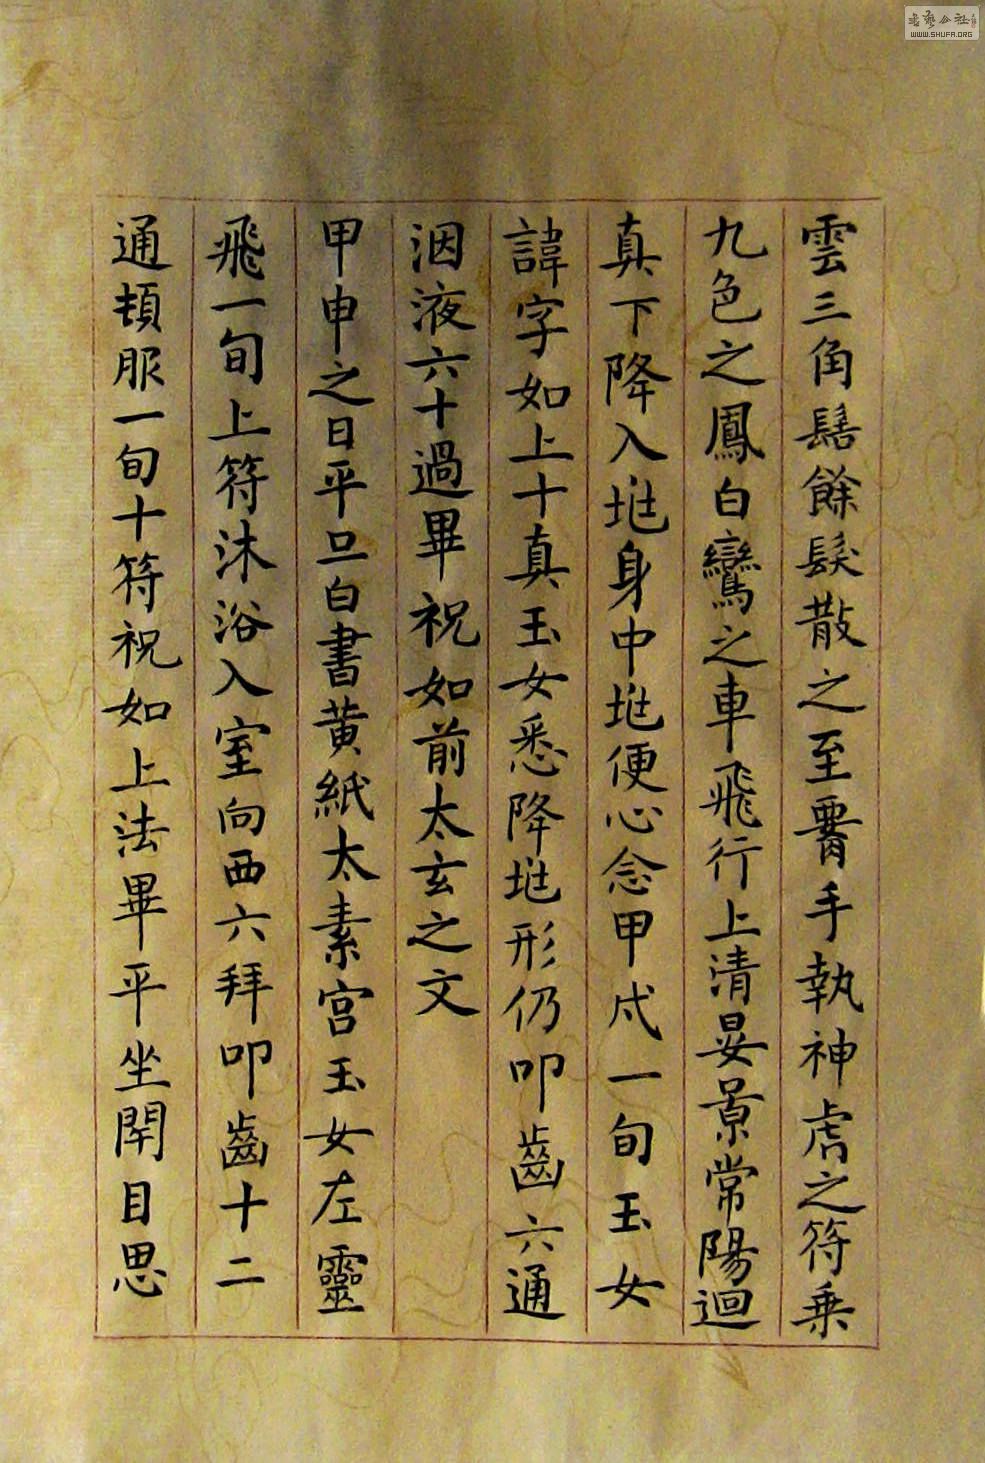 雲三角髻餘髮散之至霄手執神虎之符乗
九色之鳳白鸞之車飛行上清晏景常陽迴
真下降入兆身中兆便心念甲戌一旬玉女
諱字如上十真玉女悉降兆形仍叩齒六通
洇液六十過畢祝如前太玄之文
甲申之日平旦白書黄紙太素宫玉女左靈
飛一旬上符沐浴入室向西六拜叩齒十二
通頓服一旬十符祝如上法畢平坐閇目思
WWW.SHUFA.ORG